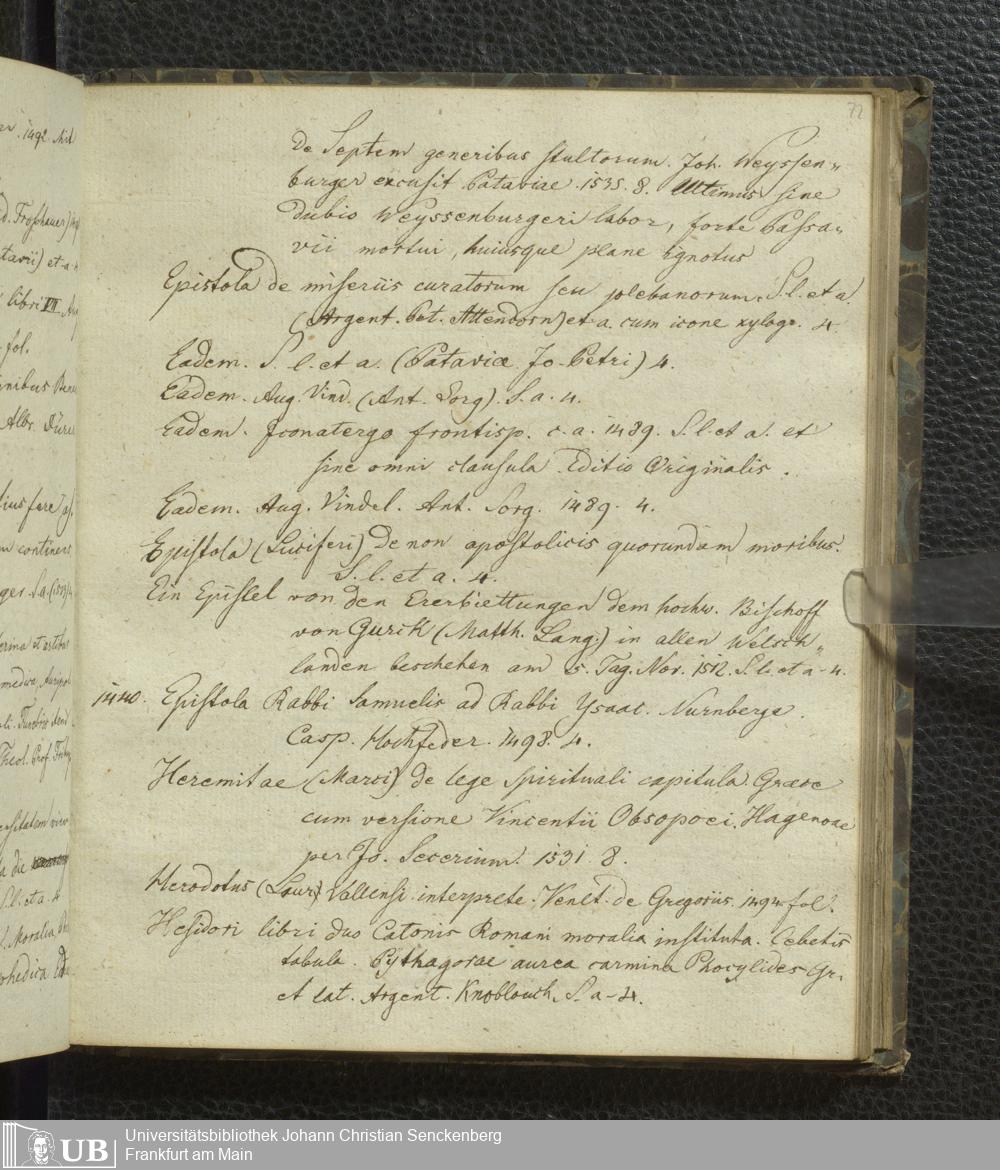 72
de Septem generibus stultorum. Joh. Weyssen„
burger excusit Pataviae. 1535. 8. Ultimus sine
dubio Weyssenburgeri labor, forte Passa„
vii mortui, huiusque plane ignotus
Epistola de miseriis curatorum seu plebanorum. S. l. et a.
(Argent. Pet. Attendorn) et a. cum icone xylogr. 4.
Eadem. S. l. et a. (Pataviæ Jo. Petri) 4.
Eadem. Aug. Vind. (Ant. Sorg). S. a. 4.
Eadem. Icon a tergo frontisp. c. a. 1489. S. l. et a. et
sine omni clausula. Editio Originalis.
Eadem. Aug. Vindel. Ant. Sorg. 1489. 4.
Epistola (Luciferi) de non apostolicis quorundam moribus.
S. l. et a. 4.
Ein Epistel von den Ererbiettungen dem hochw. Bischoff
von Gurck (Matth. Lang.) in allen Welsch„
landen beschehen am 5. Tag. Nov. 1512. S. l. et a. 4.
1440. Epistola Rabbi Samuelis ad Rabbi Ysaac. Nurnberge.
Casp. Hochfeder. 1498. 4.
Heremitae (Marci) de lege spirituali capitula. Græce
cum versione Vincentii Obsopoei. Hagenoae
per Jo. Secerium. 1531. 8.
Herodotus (Laur) Vallensi interprete. Venet. de Gregoriis. 1494. fol.
Hesidori libri duo Catonis Romani moralia instituta. Cebetis
tabula. Pythagorae aurea carmina Phocylides Gr.
et lat. Argent. Knoblouch. S. a. 4.
UB
Universitätsbibliothek Johann Christian Senckenberg
Frankfurt am Main